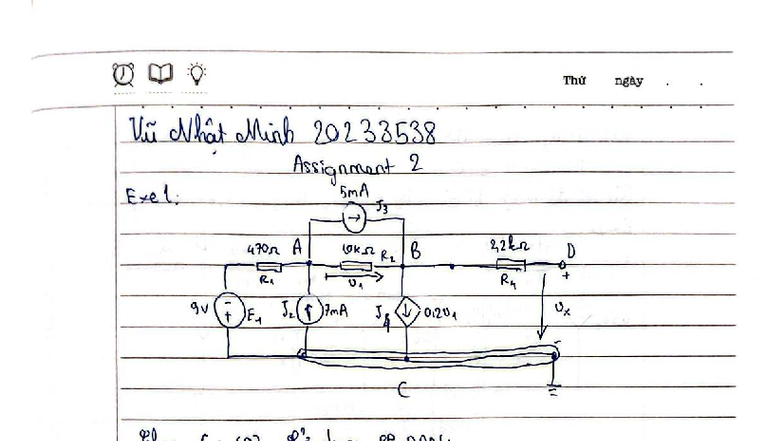 Thứ ngày . .
Vũ Nhật Minh 20233538
Assignment 2
Exe 1:
5mA
J3
470Ω A 10kΩ R2 B 2,2kΩ D
R1 U1 R4 +
9V - + E1 J2 7mA J4 0,2U1 Ux
-
C